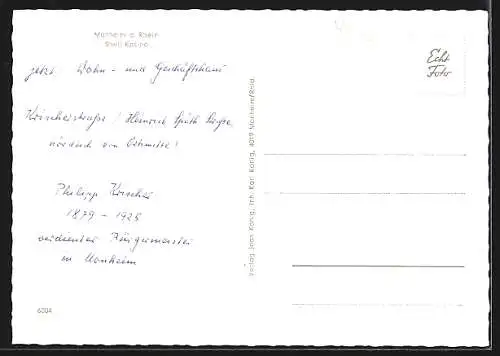 Monheim a. Rhein
Shell Kasino
jetzt: Wohn- und Geschäftshaus
Krischerstraße / Heinrich Späth Straße,
nördlich von Ortsmitte!
Philipp Krischer
1879 - 1928
verdienter Bürgermeister
in Monheim
6004
Verlag Jean König, Inh. Karl König, 4019 Monheim/Rhld
Echt
Foto